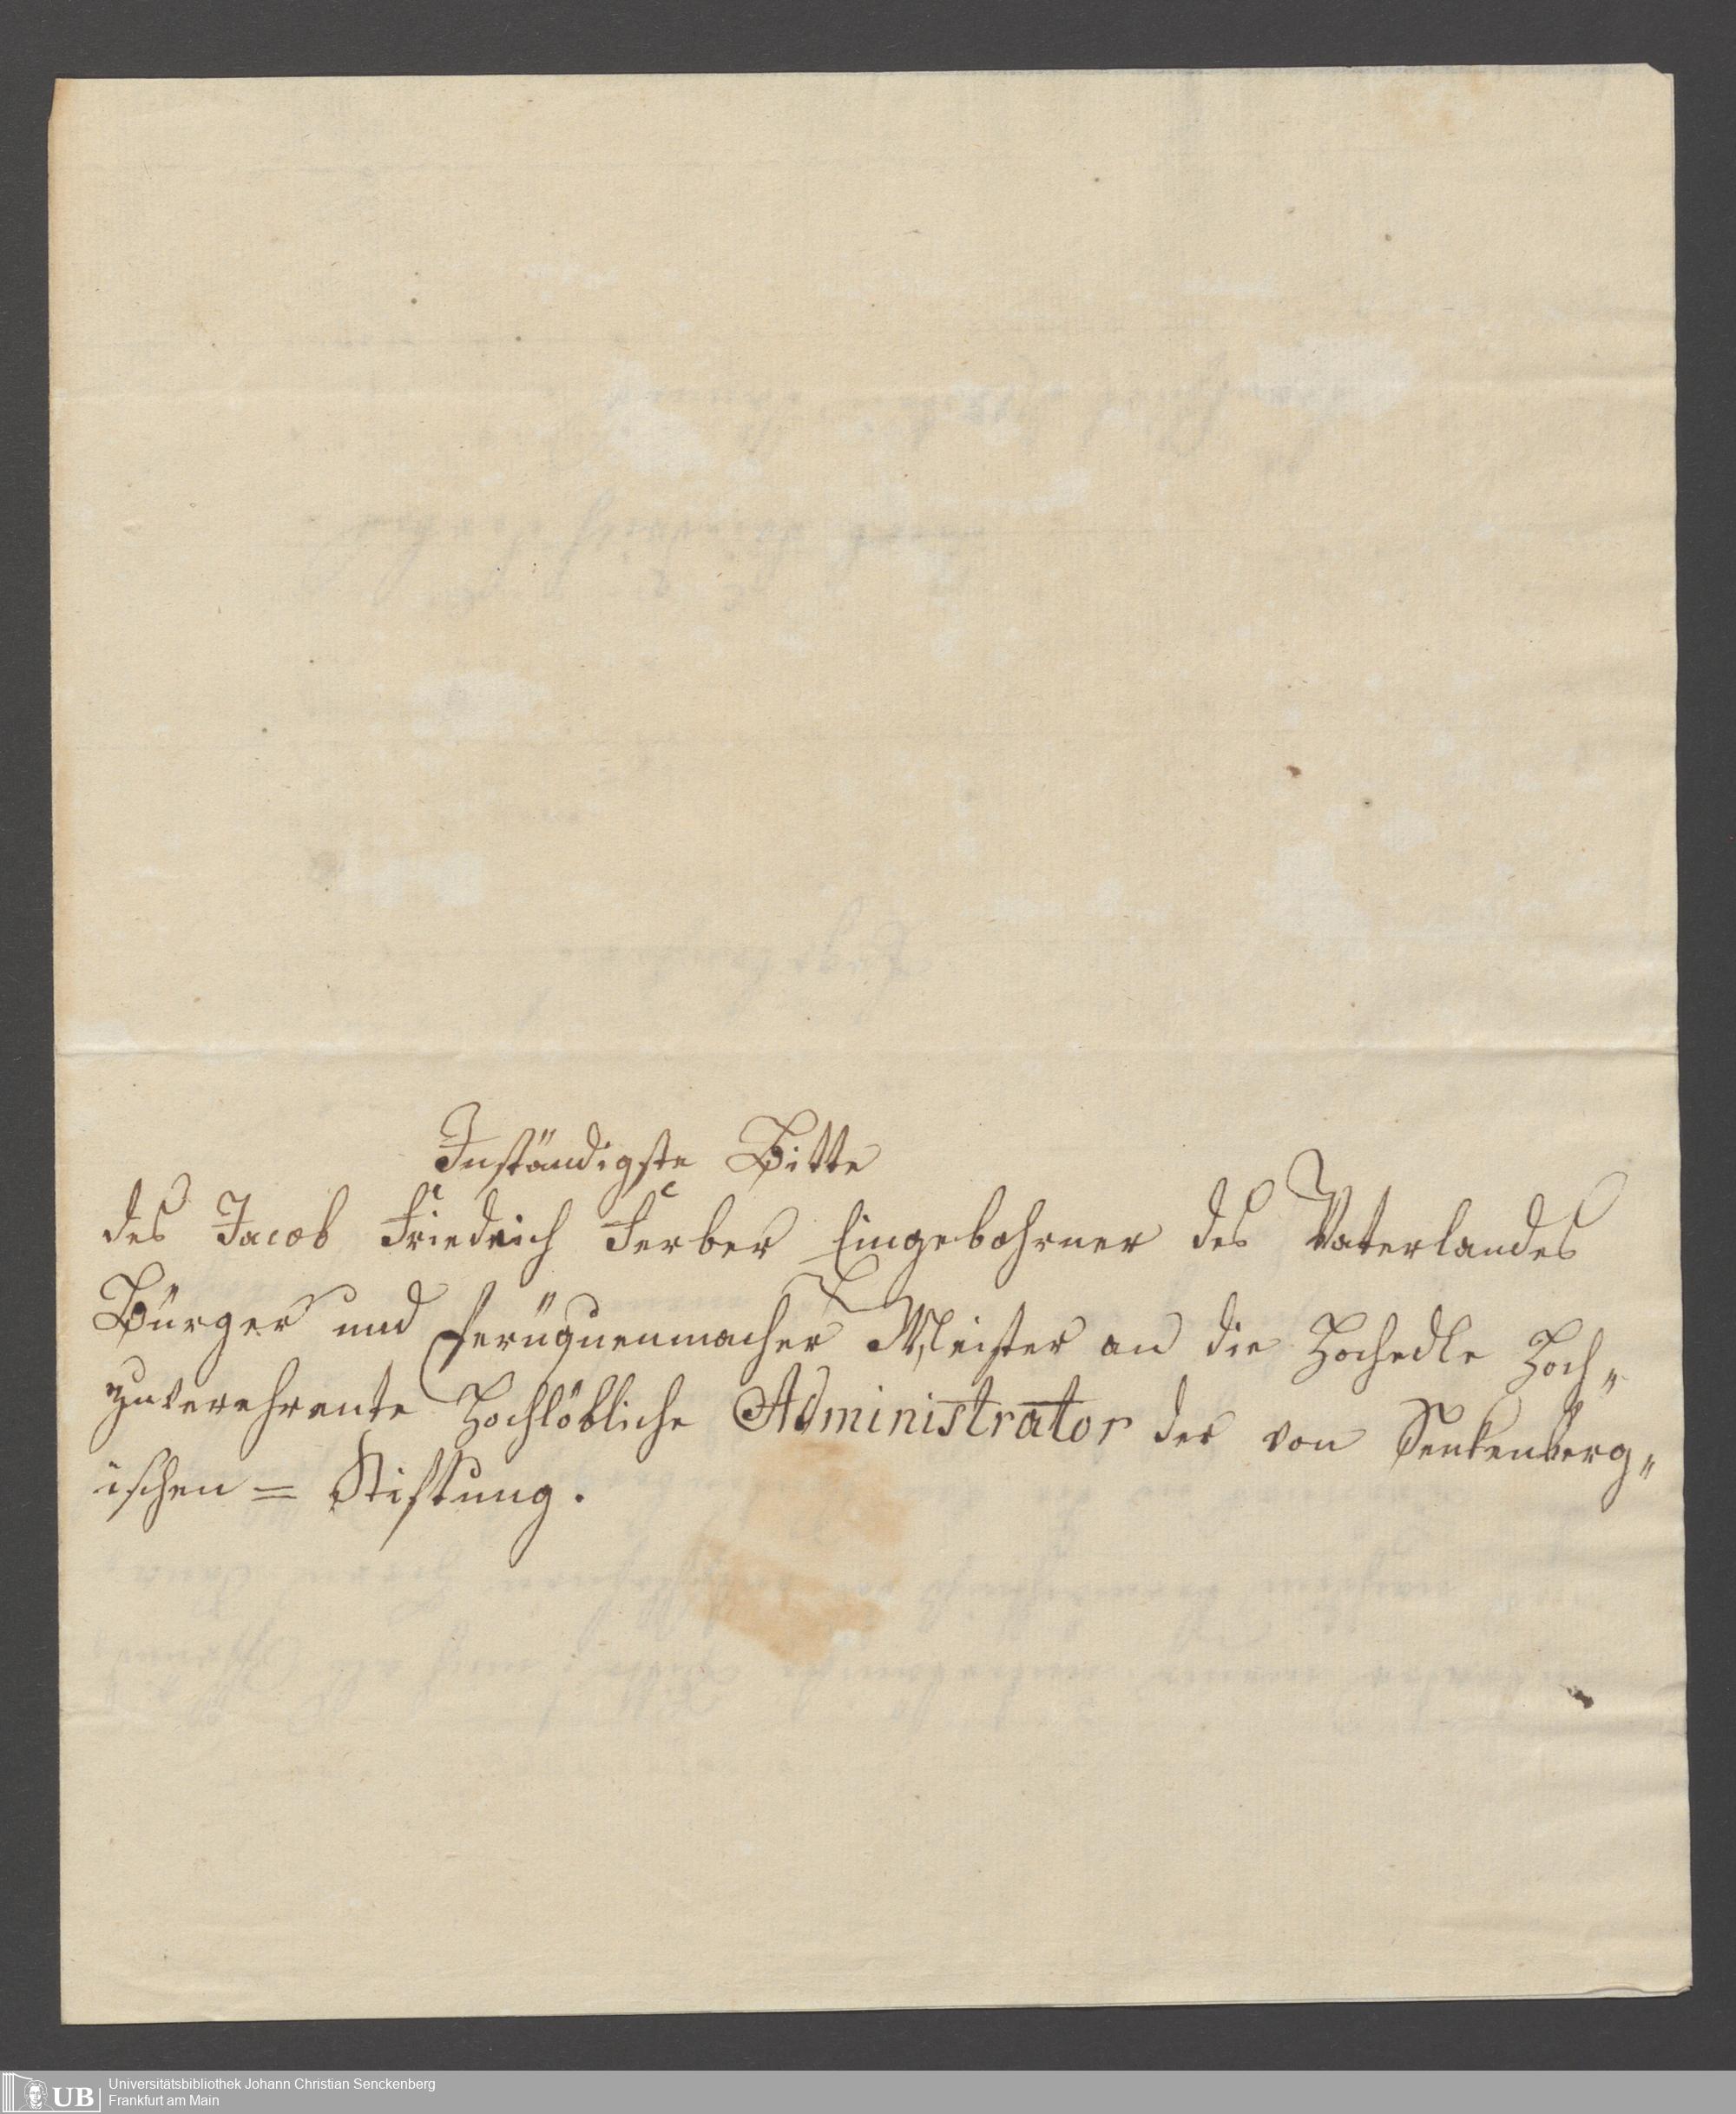 Inständigste Bitte
des Jacob Friedrich Ferber Eingebohrner des Vaterlandes
Bürger und Perüquenmacher Meister an die Hochedle Hoch„
zuverehrente Hochlöbliche Administrator der von Senkenberg„
ischen = Stiftung.
UB
Universitätsbibliothek Johann Christian Senckenberg
Frankfurt am Main